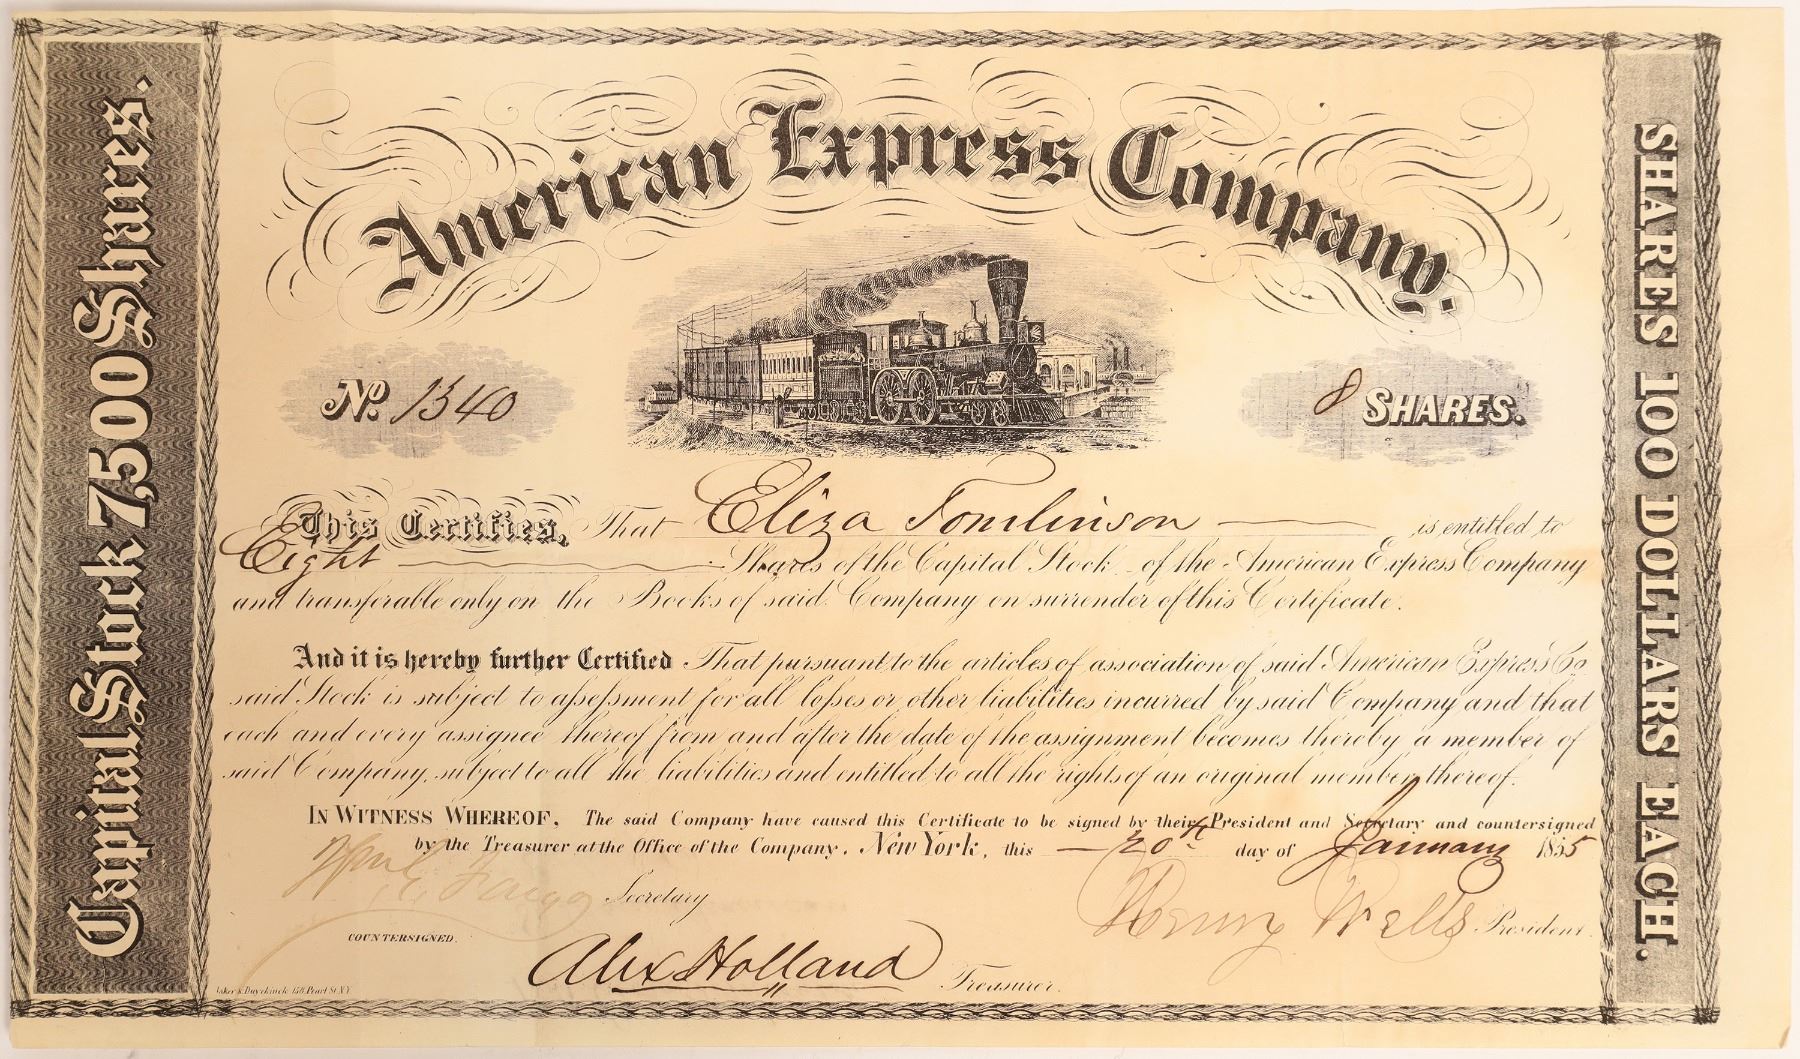 American Express Company.
Capital Stock 7,500 Shares.
No. 1340
8 SHARES.
SHARES 100 DOLLARS EACH.
This Certifies, That Eliza Tomlinson is entitled to
Eight Shares of the Capital Stock of the American Express Company
and transferable only on the Books of said Company on surrender of this Certificate.
And it is hereby further Certified That pursuant to the articles of association of said American Express Co.
said Stock is subject to assessment for all losses or other liabilities incurred by said Company and that
each and every assignee thereof from and after the date of the assignment becomes thereby a member of
said Company, subject to all the liabilities and entitled to all the rights of an original member thereof.
IN WITNESS WHEREOF, The said Company have caused this Certificate to be signed by their President and Secretary and countersigned
by the Treasurer at the Office of the Company, New York, this 20th day of January 1855
Wm G Fargo Secretary
Henry Wells President
COUNTERSIGNED.
Alex Holland Treasurer.
& Duyckinck 158 Pearl St. N.Y.